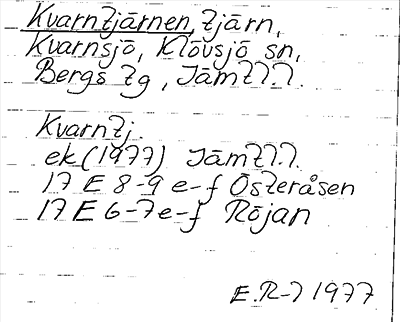 Kvarntjärnen, tjärn,
Kvarnsjö, Klövsjö sn,
Bergs tg, Jämtl.
Kvarntj.
ek (1977) Jämtl.
17 E 8-9 e-f Österåsen
17 E 6-7 e-f Röjan
E.R-l 1977